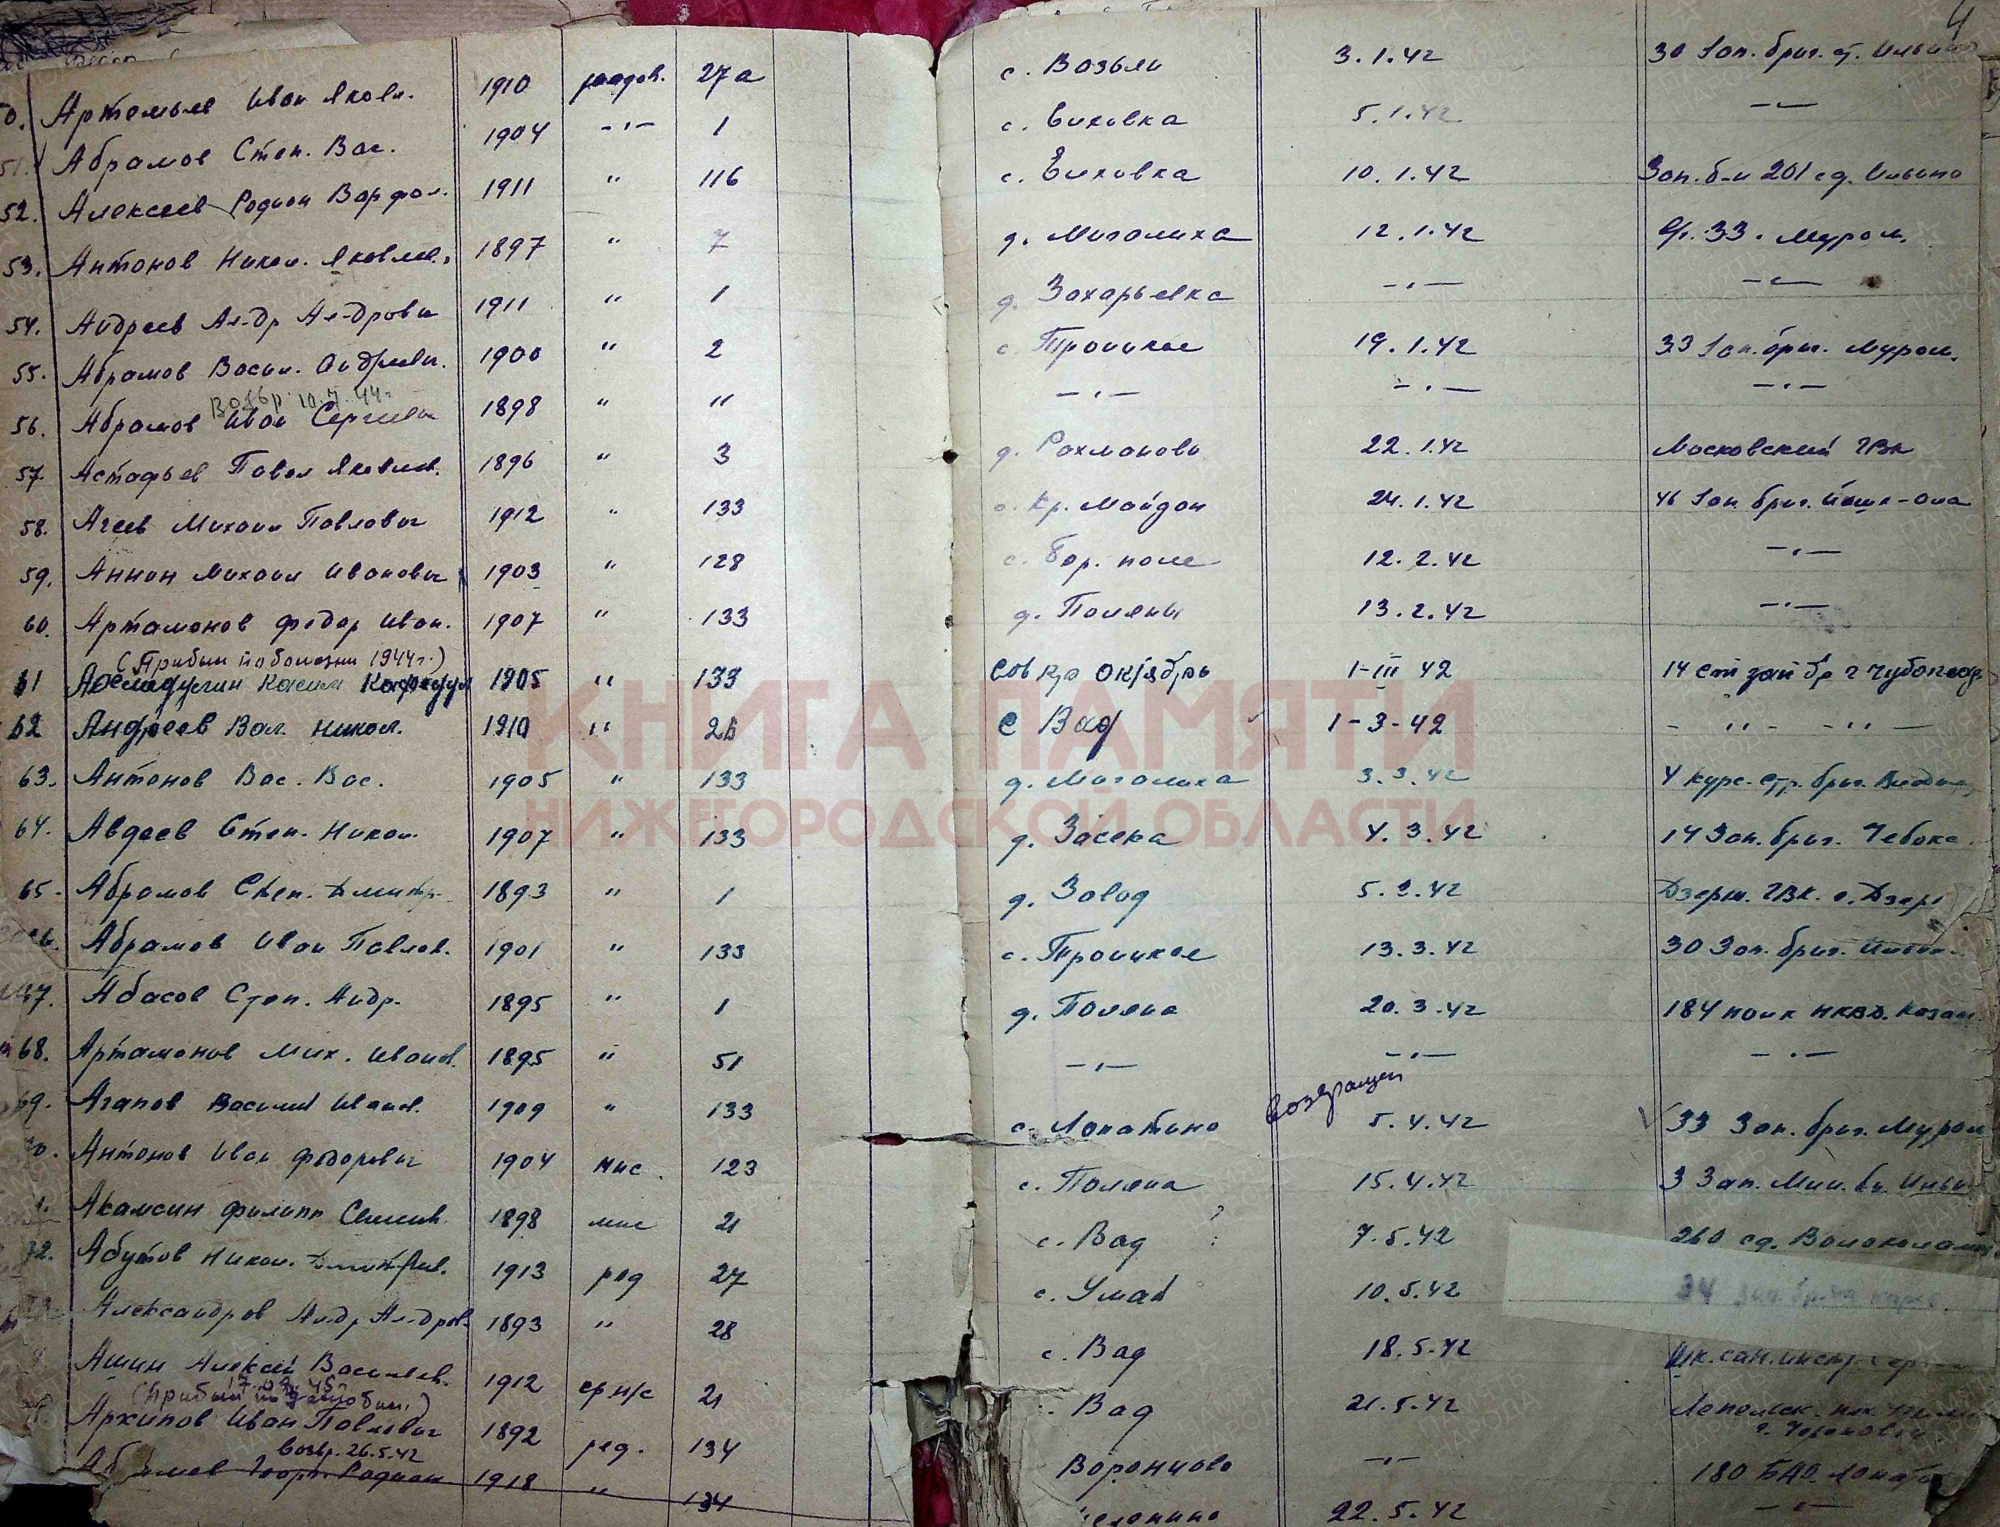 4
Артемьев Иван Яковл. 1910 рядов. 27а с. Возьли 3.1.42 30 Зап. бриг. ст. Ильино
51. Абрамов Степ. Вас. 1904 -"- 1 с. Елховка 5.1.42 -"-
52. Алексеев Родион Варфол. 1911 " 116 с. Елховка 10.1.42 Зап. б-н 201 сд. Ильино
53. Антонов Никол. Яковлев. 1897 " 7 д. Миголиха 12.1.42 33. Муром.
54. Андреев Ал-др Ал-дрович 1911 " 1 д. Захарьевка -"- -"-
55. Абрамов Васил. Андреевич. 1900 " 2 с. Троицкое 19.1.42 33 Зап. бриг. Муром.
Возвр. 10.4.44г.
56. Абрамов Иван Сергеевич 1898 " 11 -"- -"- -"-
57. Астафьев Павел Яковлев. 1896 " 3 д. Рахманово 22.1.42 Московский ГВК
58. Агеев Михаил Павлович 1912 " 133 с. Кр. Майдан 24.1.42 46 Зап. бриг. Йошк-Ола
59. Аннин Михаил Иванович 1903 " 128 с. Бор. поле 12.2.42 -"-
60. Артамонов Федор Иван. 1907 " 133 д. Поляны 13.2.42 -"-
(Прибыл по болезни 1944г.)
61 Касим 1905 " 133 Совхоз Октябрь 1-III 42 14 зап бр г Чубоксар
62 Андреев Вал. Никол. 1910 " 2б с Вад 1-3-42 - " - " -
63. Антонов Вас. Вас. 1905 " 133 д. Миголиха 3.3.42 4 курс. стр. бриг. Владим
64. Авдеев Степ. Никол. 1907 " 133 д. Засека 4.3.42 14 Зап. бриг. Чебокс.
65. Абрамов Степ. Дмитр. 1893 " 1 д. Завод 5.3.42 Дзерж. ГВК. г. Дзерж
Абрамов Иван Павлов. 1901 " 133 с. Троицкое 13.3.42 30 Зап. бриг. Ильин
67. Абасов Степ. Андр. 1895 " 1 д. Поляна 20.3.42 184 полк НКВД. Казан.
68. Артамонов Мих. Иванов. 1895 " 51 -"- -"- -"-
возвращен
69. Агапов Василий Иванов. 1909 " 133 с. Лопатино 5.4.42 33 Зап. бриг. Муром
70. Антонов Иван Федорович 1904 мнс 123 с. Поляна 15.4.42 3 Зап. Мин. бн. Ильин
Филипп 1898 мнс 21 с. Вад 7.5.42 260 сд. Волоколамск
72. Абутов Никол. Дмитриев. 1913 ряд 27 с. Умай 10.5.42 34 Зап. бриг.
Александров Андр Ал-дров. 1893 " 28 с. Вад 18.5.42 Шк. сан. инстр.
Ашин Алексей Васильев. 1912 ср н/с 21 Вад 21.5.42 Лепельск. пех.
(прибыл по демобил.)
Архипов Иван Павлович 1892 ряд. 134 Воронцово -"- 180 БАО. Лопат
возвр. 26.5.42
Абрамов Родион 1918 " 134 22.5.42 -"-
КНИГА ПАМЯТИ
НИЖЕГОРОДСКОЙ ОБЛАСТИ